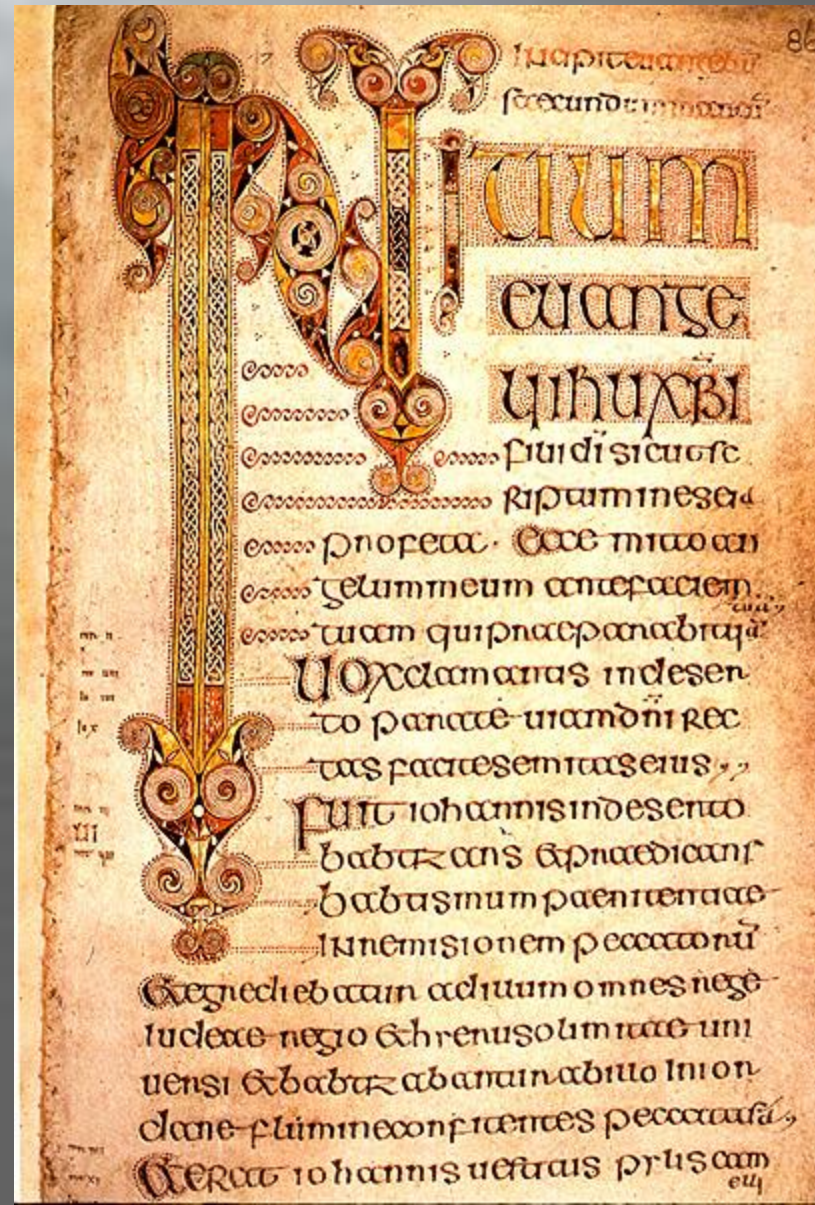 86
secundum
INITIUM
euange
lii ihu xpi
filii dī sicut sc
riptum in eseia
profeta · Ecce mitto an
gelum meum ante faciem
tuam qui praeparabit uiā
tuā
Uox clamantis in deser
to parate uiam dn̄i rec
tas facite semitas eius
Fuit iohannis in deserto
babtizans & praedicans
babtismum paenitentiae
in remisionem peccatorū
& egrediebatur ad illum omnes rege
iudeae regio & hierusolimitae uni
uersi & babtizabantur ab illo in ior
dane flumine confitentes peccata suā
& erat iohannis uestitus pylis cam
elli